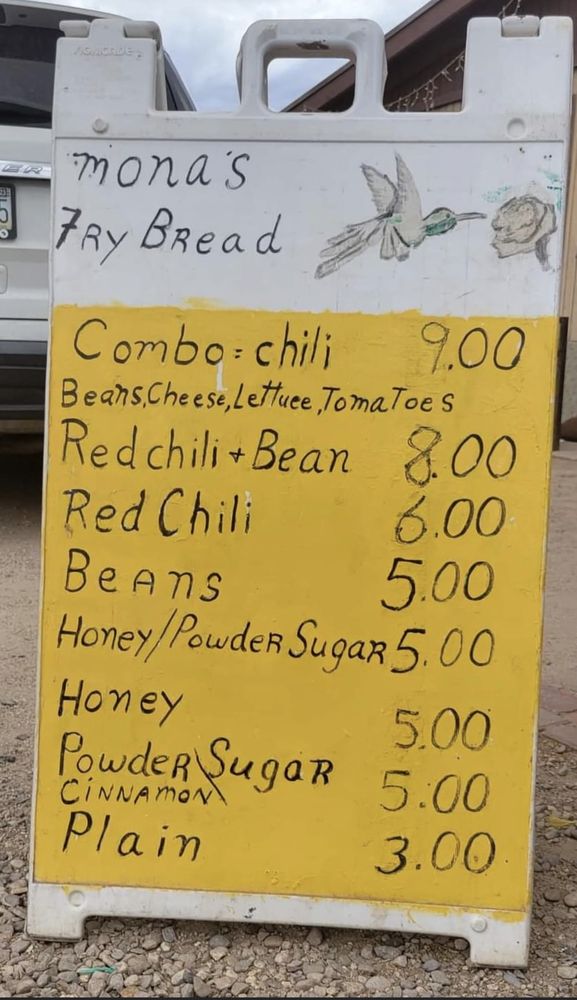 mona's
Fry Bread
Combo: chili 9.00
Beans,Cheese,Lettuce,Tomatoes
Red chili + Bean 8.00
Red Chili 6.00
Beans 5.00
Honey/Powder Sugar 5.00
Honey 5.00
Powder\Sugar 5.00
Cinnamon\
Plain 3.00